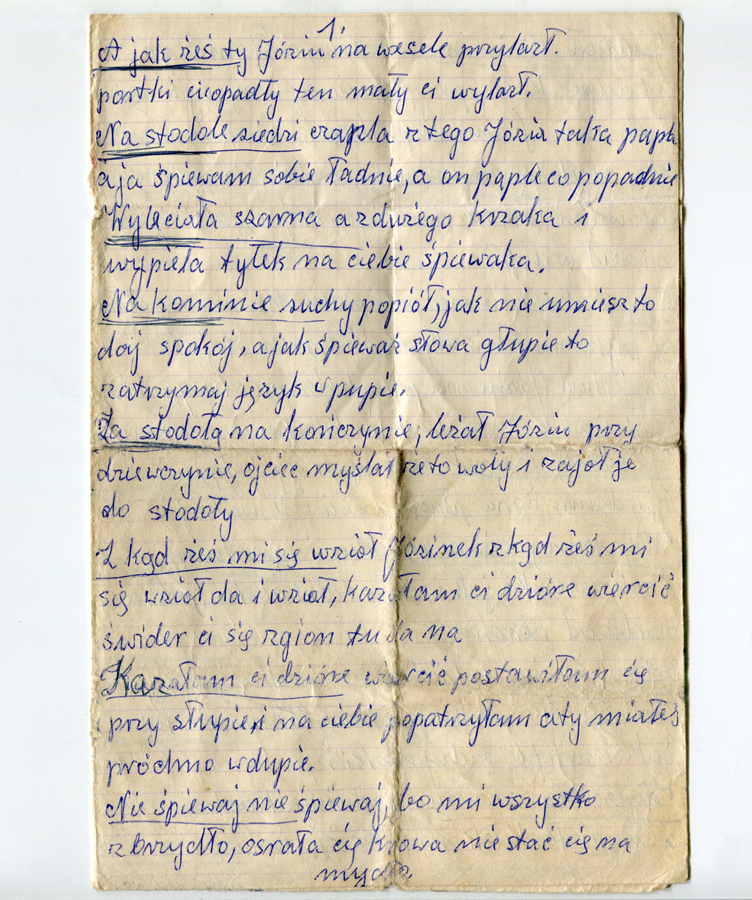 1.
A jak żeś ty Józiu na wesele przylazł.
portki ci opadły ten mały ci wylazł.
Na stodole siedzi czapla z tego Józia taka papla
a ja śpiewam sobie ładnie, a on paple co popadnie
Wyleciała szarna a z dużego krzaka i
wypieła tyłek na ciebie śpiewaka.
Na kominie suchy popiół, jak nie umiesz to
daj spokój, a jak śpiewasz słowa głupie to
zatrzymaj język w pupie.
Za stodołą na kończynie, leżał Józiu przy
dziewczynie, ojciec myślał że to woły i zajoł je
do stodoły
Z kąd żeś mi się wzioł Józinek z kąd żeś mi
się wzioł da i wzioł, kazałam ci dzióre wiercić
świder ci się zgion tu da na
Kazałam ci dzióre wiercić postawiłam cię
przy słupie, i na ciebie popatrzyłam a ty miałeś
próchno w dupie.
Nie śpiewaj nie śpiewaj, bo mi wszystko
zbrzydło, osrała cię krowa nie stać cię na
mydło.